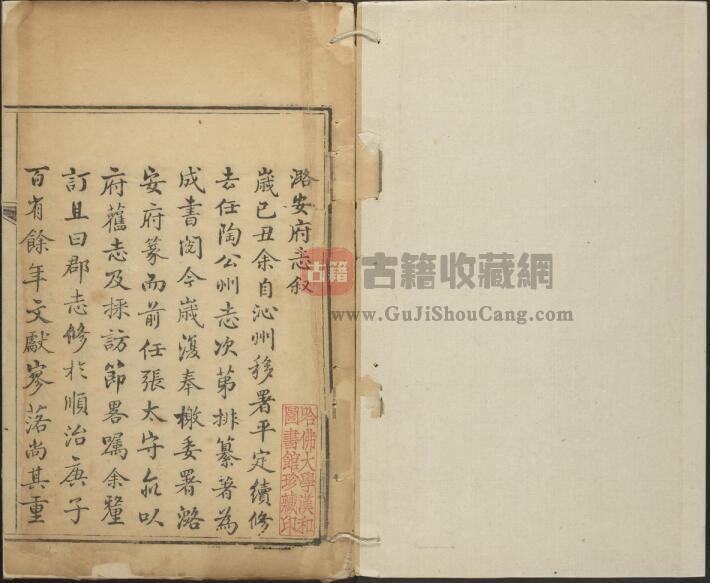 潞安府志叙
歲己丑余自沁州移署平定續修
去任陶公州志次第排纂著為
成書閱今歲復奉檄委署潞
安府篆而前任張太守亦以
府舊志及採訪節畧囑余釐
訂且曰郡志修於順治庚子
百有餘年文獻寥落尚其重
哈佛大學漢和
圖書館珍藏印
古籍
古籍收藏網
www.GuJiShouCang.com